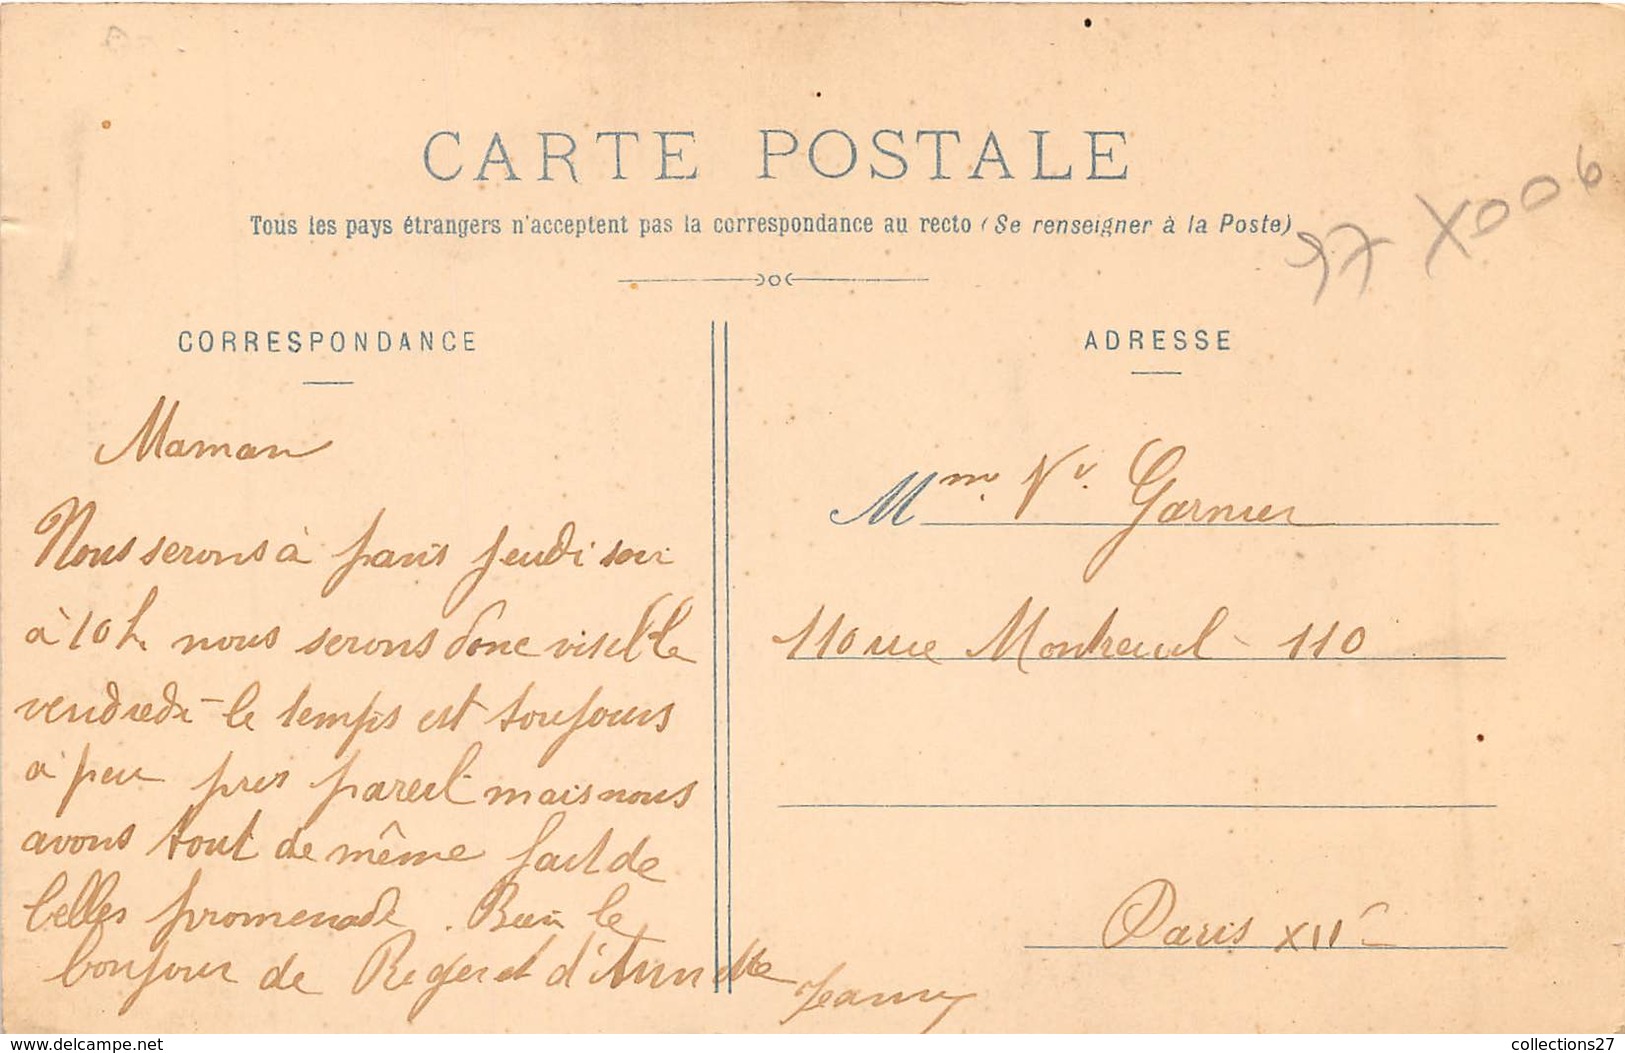 CARTE POSTALE
Tous les pays étrangers n'acceptent pas la correspondance au recto (Se renseigner à la Poste)
37 X006
CORRESPONDANCE
Maman
Nous serons à paris jeudi soir
à 10 h. nous serons donc visible
vendredi - le temps est toujours
à peu pres pareil mais nous
avons tout de même fait de
belles promenade. Bien le
bonjour de Roger et d'Annette
Jeanny
ADRESSE
Mme Vv. Garnier
110 rue Montreuil - 110
Paris XIIe
www.delcampe.net
collections27